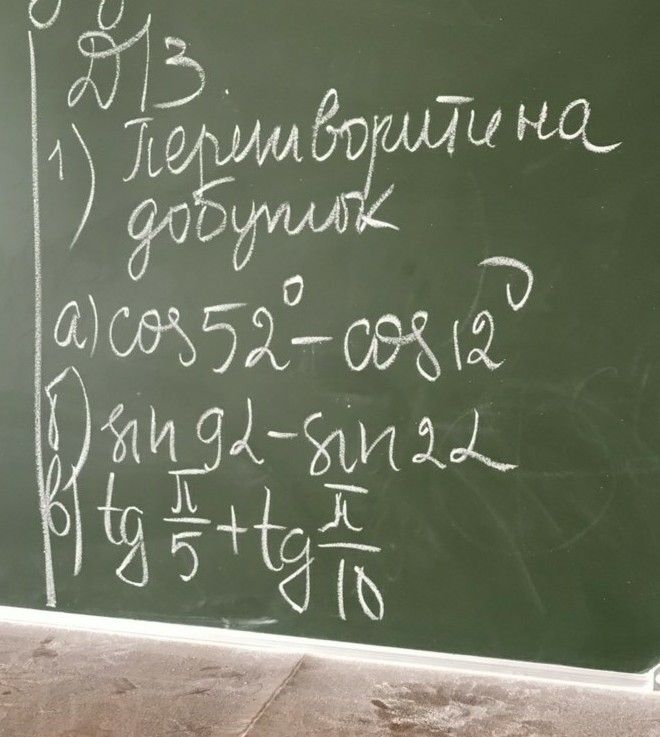 Д/З
1) Перетворити на
добуток
а) cos 52° - cos 12°
б) sin 9α - sin 2α
в) tg π/5 + tg π/10